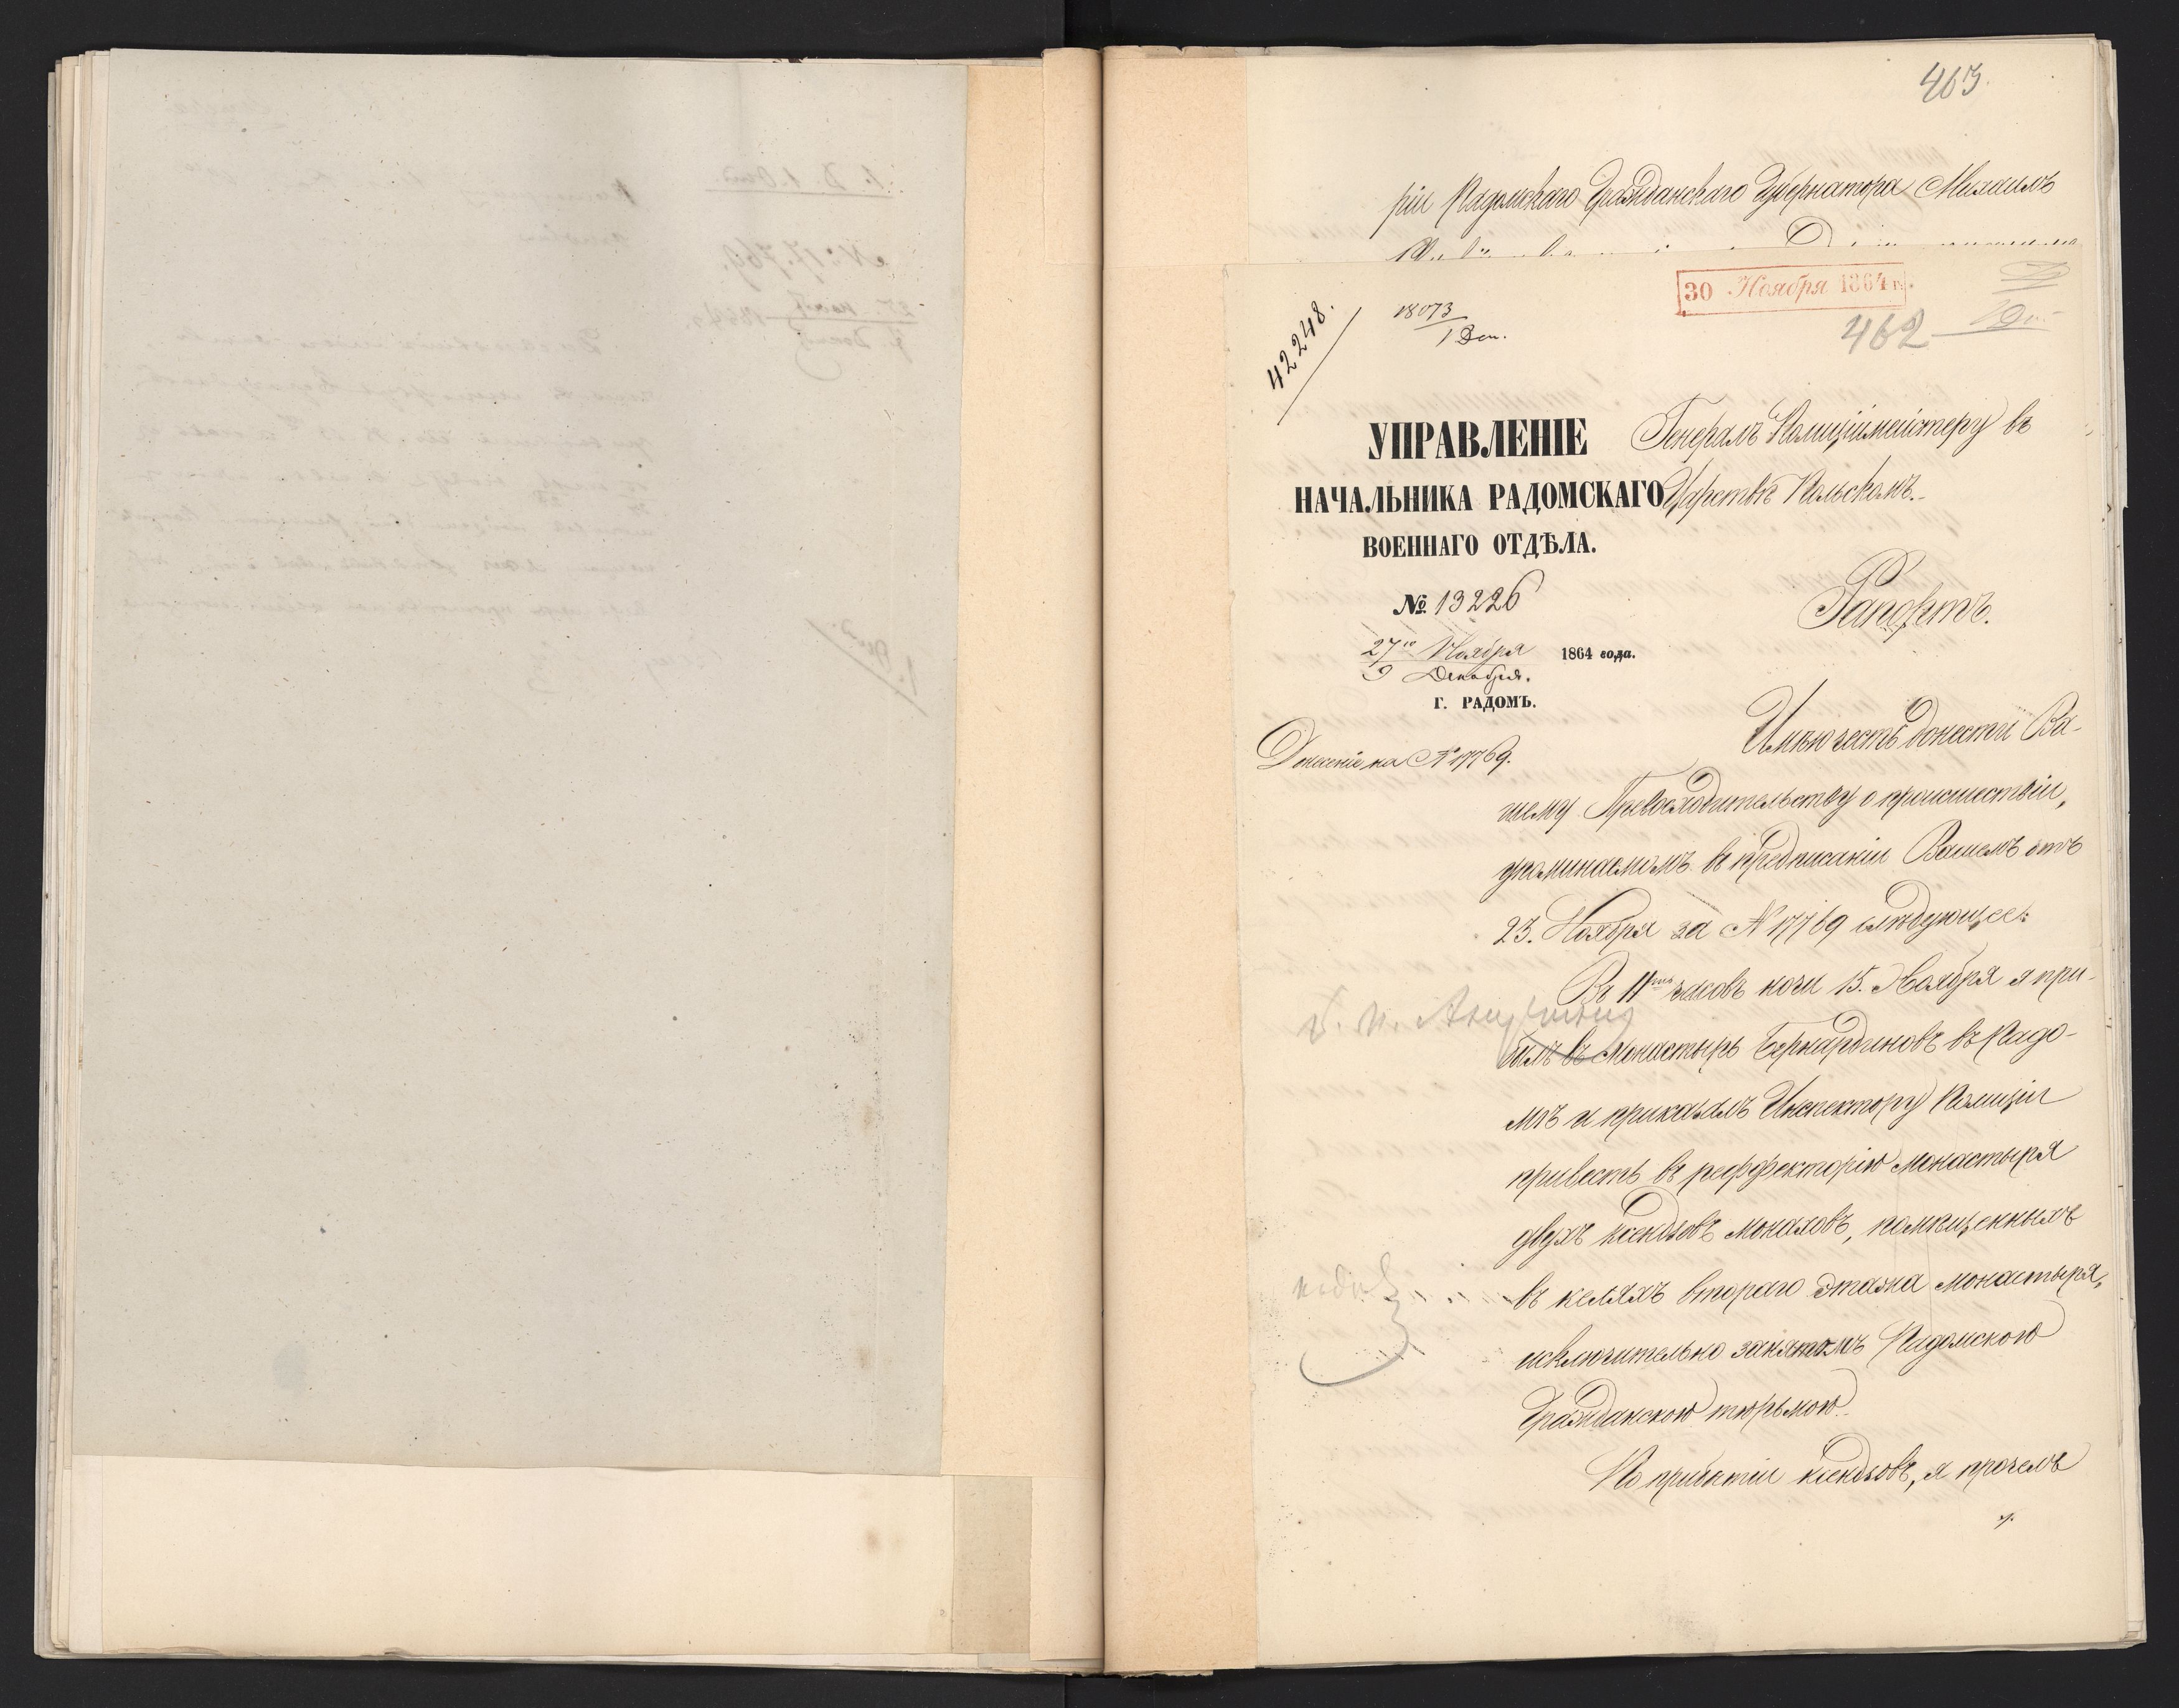 463.
ріи Радомскаго Гражданскаго Губернатора Михаилъ
30 Ноября 1864 г.
42248.
18073
1 Дек.
462
УПРАВЛЕНІЕ
НАЧАЛЬНИКА РАДОМСКАГО
ВОЕННАГО ОТДѢЛА.
№ 13226
27го Ноября 1864 года.
9 Декабря.
Г. РАДОМЪ.
Донесеніе на № 17769.
Генералъ Полиціймейстеру въ
Царствѣ Польскомъ.
Рапортъ.
Имѣю честь донести Ва-
шему Превосходительству о происшествіи,
упоминаемомъ въ предписаніи Вашемъ отъ
23. Ноября за № 17769 слѣдующее:
Въ 11ть часовъ ночи 15. Ноября я при-
былъ въ Монастырь Бернардиновъ въ Радо-
мѣ и приказалъ Инспектору Полиціи
привесть въ реффекторію монастыря
двухъ ксендзовъ монаховъ, помѣщенныхъ
въ келіяхъ втораго этажа монастыря,
исключительно занятомъ Радомскою
Гражданскою тюрьмою.
По прибытіи ксендзовъ, я прочелъ